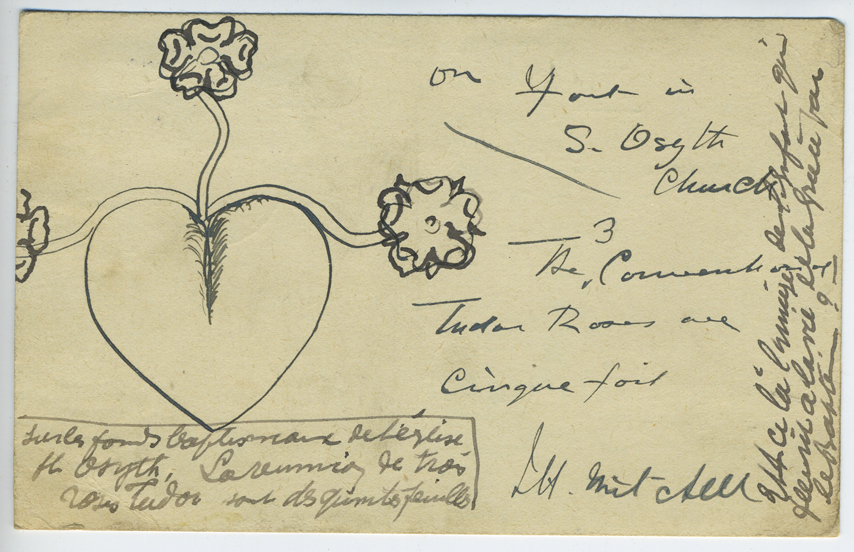 on Font in
S. Osyth
Church
3
The Conventional
Tudor Roses are
Cinque foil
Mitchell
sur les fonds baptismaux de l'église
St Osyth, La reunion de trois
roses Tudor sont des quintefeuilles
Est ce la
fleurir a la vie et la grace par
le bapteme ?